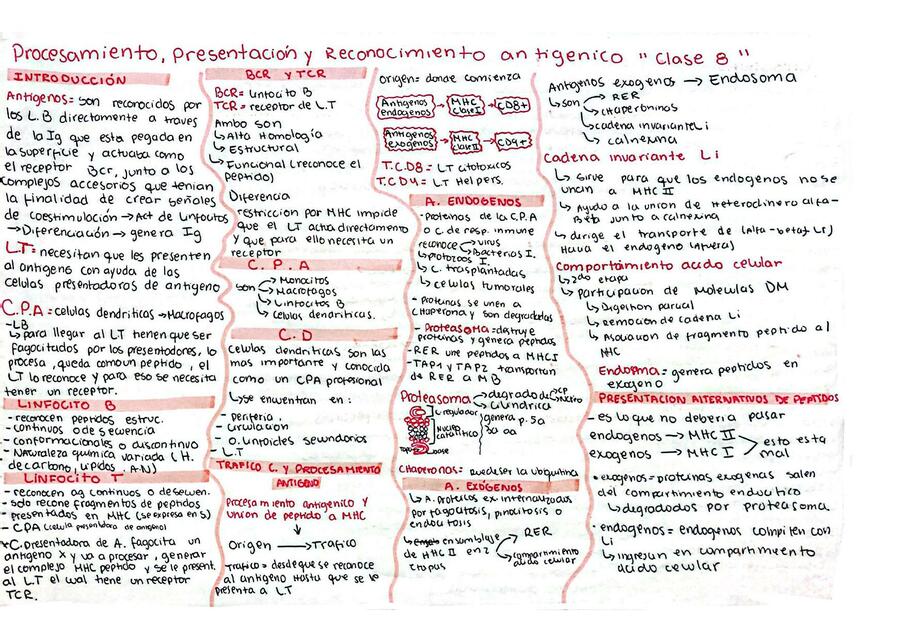 Procesamiento, Presentación y Reconocimiento antigenico "Clase 8"
INTRODUCCIÓN
Antígenos = son reconocidos por
los L.B directamente a traves
de la Ig que esta pegada en
la superficie y actuaba como
el receptor Bcr, junto a los
complejos accesorios que tenian
la finalidad de crear señoles
de coestimulación → Act de Linfocitos
→ Diferenciación → genera Ig
L.T = necesitan que les presenten
al antigeno con ayuda de las
celulas presentadoras de antigeno
C.P.A = celulas dendriticas → Macrofagos
- LB
↳ para llegar al LT tienen que ser
fagocitados por los presentadores, lo
procesa, queda como un peptido, el
LT lo reconoce y para eso se necesita
tener un receptor.
LINFOCITO B
- reconoce peptidos estruc.
- continuos o de secuencia
- conformacionales o discontinuo
- Naturaleza quimica variada (H.
de carbono, lipidos, A.N)
LINFOCITO T
- reconocen ag continuos o de secuen.
- solo recone fragmentos de peptidos
presentados en MHC (se expresa en S)
- CPA (celula presentadora de antigeno)
*C. presentadora de A. fagocita un
antigeno x y va a procesar, generar
el complejo MHC peptido y se le present.
al L.T el cual tiene un receptor
TCR.
BCR Y TCR
BCR = Linfocito B
TCR = receptor de L.T
Ambo son
↳ Alta Homología
↳ Estructural
↳ Funcional (reconoce el
peptido)
Diferencia
restriccion por MHC impide
que el LT actua directamento
y que para ello necesita un
receptor
C.P.A
son → Monocitos
→ Macrofagos
→ Linfocitos B
↳ celulas dendriticas.
C.D
celulas dendriticas son las
mas importante y conocida
como un CPA profesional
↳ se encuentran en:
- Periferia.
- circulación
- O. Linfoides secundarios
- L.T
TRAFICO C. Y PROCESAMIENTO
ANTIGENO
Procesamiento antigenico y
union de peptido a MHC
↓
Origen → Trafico
Trafico = desde que se reconoce
al antigeno hasta que se le
presenta a LT
Origen = donde comienza
Antigenos endogenos → MHC clase I → CD8+
Antigenos exogenos → MHC clase II → CD4+
T.CD8 = LT citotoxicos
T.CD4 = LT Helpers.
A. ENDOGENOS
- Proteinas de la C.P.A
o C. de resp. inmune
reconoce → virus
→ Bacterias I.
↳ protozoos I.
↳ C. trasplantadas
↳ celulas tumorales
- Proteinas se unen a
chaperona y son degradadas
- Proteasoma = destruye
proteinas y genera peptidos
- RER une peptidos a MHC I
- TAP1 y TAP2 transportan
de RER a MB
Proteasoma → degrada
→ cilindrica
genera p. 5 a
30 aa
C. regulador
nucleo
catalitico
base
A. EXÓGENOS
↳ A. Proteicos ex internalizados
por fagocitosis, pinocitosis o
endocitosis
ensamblaje
de MHC II en 2
etapas
→ RER
↳ compartimiento
acido celular
Antigenos exogenos → Endosoma
↳ son → RER
→ chaperoninas
↳ cadena invariante Li
↳ calnexina
Cadena invariante Li
↳ Sirve para que los endogenos no se
unan a MHC II
↳ Ayuda a la union de Heterodimero alfa-
Beta junto a calnexina
↳ dirige el transporte de (alfa-beta/Li)
Hacia el endogeno
comportamiento acido celular
↳ 2da etapa
↳ participacion de Moleculas DM
↳ Digestion parcial
↳ Remocion de cadena Li
↳ Asociacion de fragmento peptido al
MHC
Endosoma = genera peptidos en
exogeno
PRESENTACION ALTERNATIVOS DE PEPTIDOS
- es lo que no deberia pasar
endogenos → MHC II
exogenos → MHC I
esto esta
mal
• exogenos = proteinas exogenas salen
del compartimiento endocitico
↳ degradados por proteasoma.
• endogenos = endogenos compiten con
Li
↳ ingresan en compartimiento
acido celular